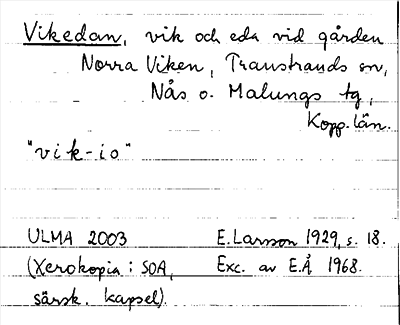 Vikedan, vik och eda vid gården
Norra Viken, Transtrands sn,
Nås o. Malungs tg,
Kopp. län.
"vik-io"
ULMA 2003 E. Larsson 1929, s. 18.
(Xerokopia: SOA, Exc. av E.Å 1968.
särsk. kapsel).